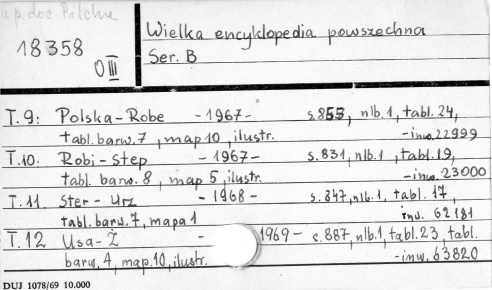 u p. doc Pilcha
18358
OIII
Wielka encyklopedia powszechna
Ser. B
T. 9: Polska-Robe - 1967 - s. 855, nlb. 1, tabl. 24,
tabl. barw. 7, map 10, ilustr. - inw. 22999
T. 10. Robi-Step - 1967 - s. 831, nlb. 1, tabl. 19,
tabl. barw. 8, map 5, ilustr. - inw. 23000
T. 11 Ster - Urz - 1968 - s. 847, nlb. 1, tabl. 17,
tabl. barw. 7, mapa 1 inw. 62181
T. 12 Usa-Ż - 1969 - s. 887, nlb. 1, tabl. 23, tabl.
barw. 4, map. 10, ilustr. - inw. 63820
DUJ 1078/69 10.000